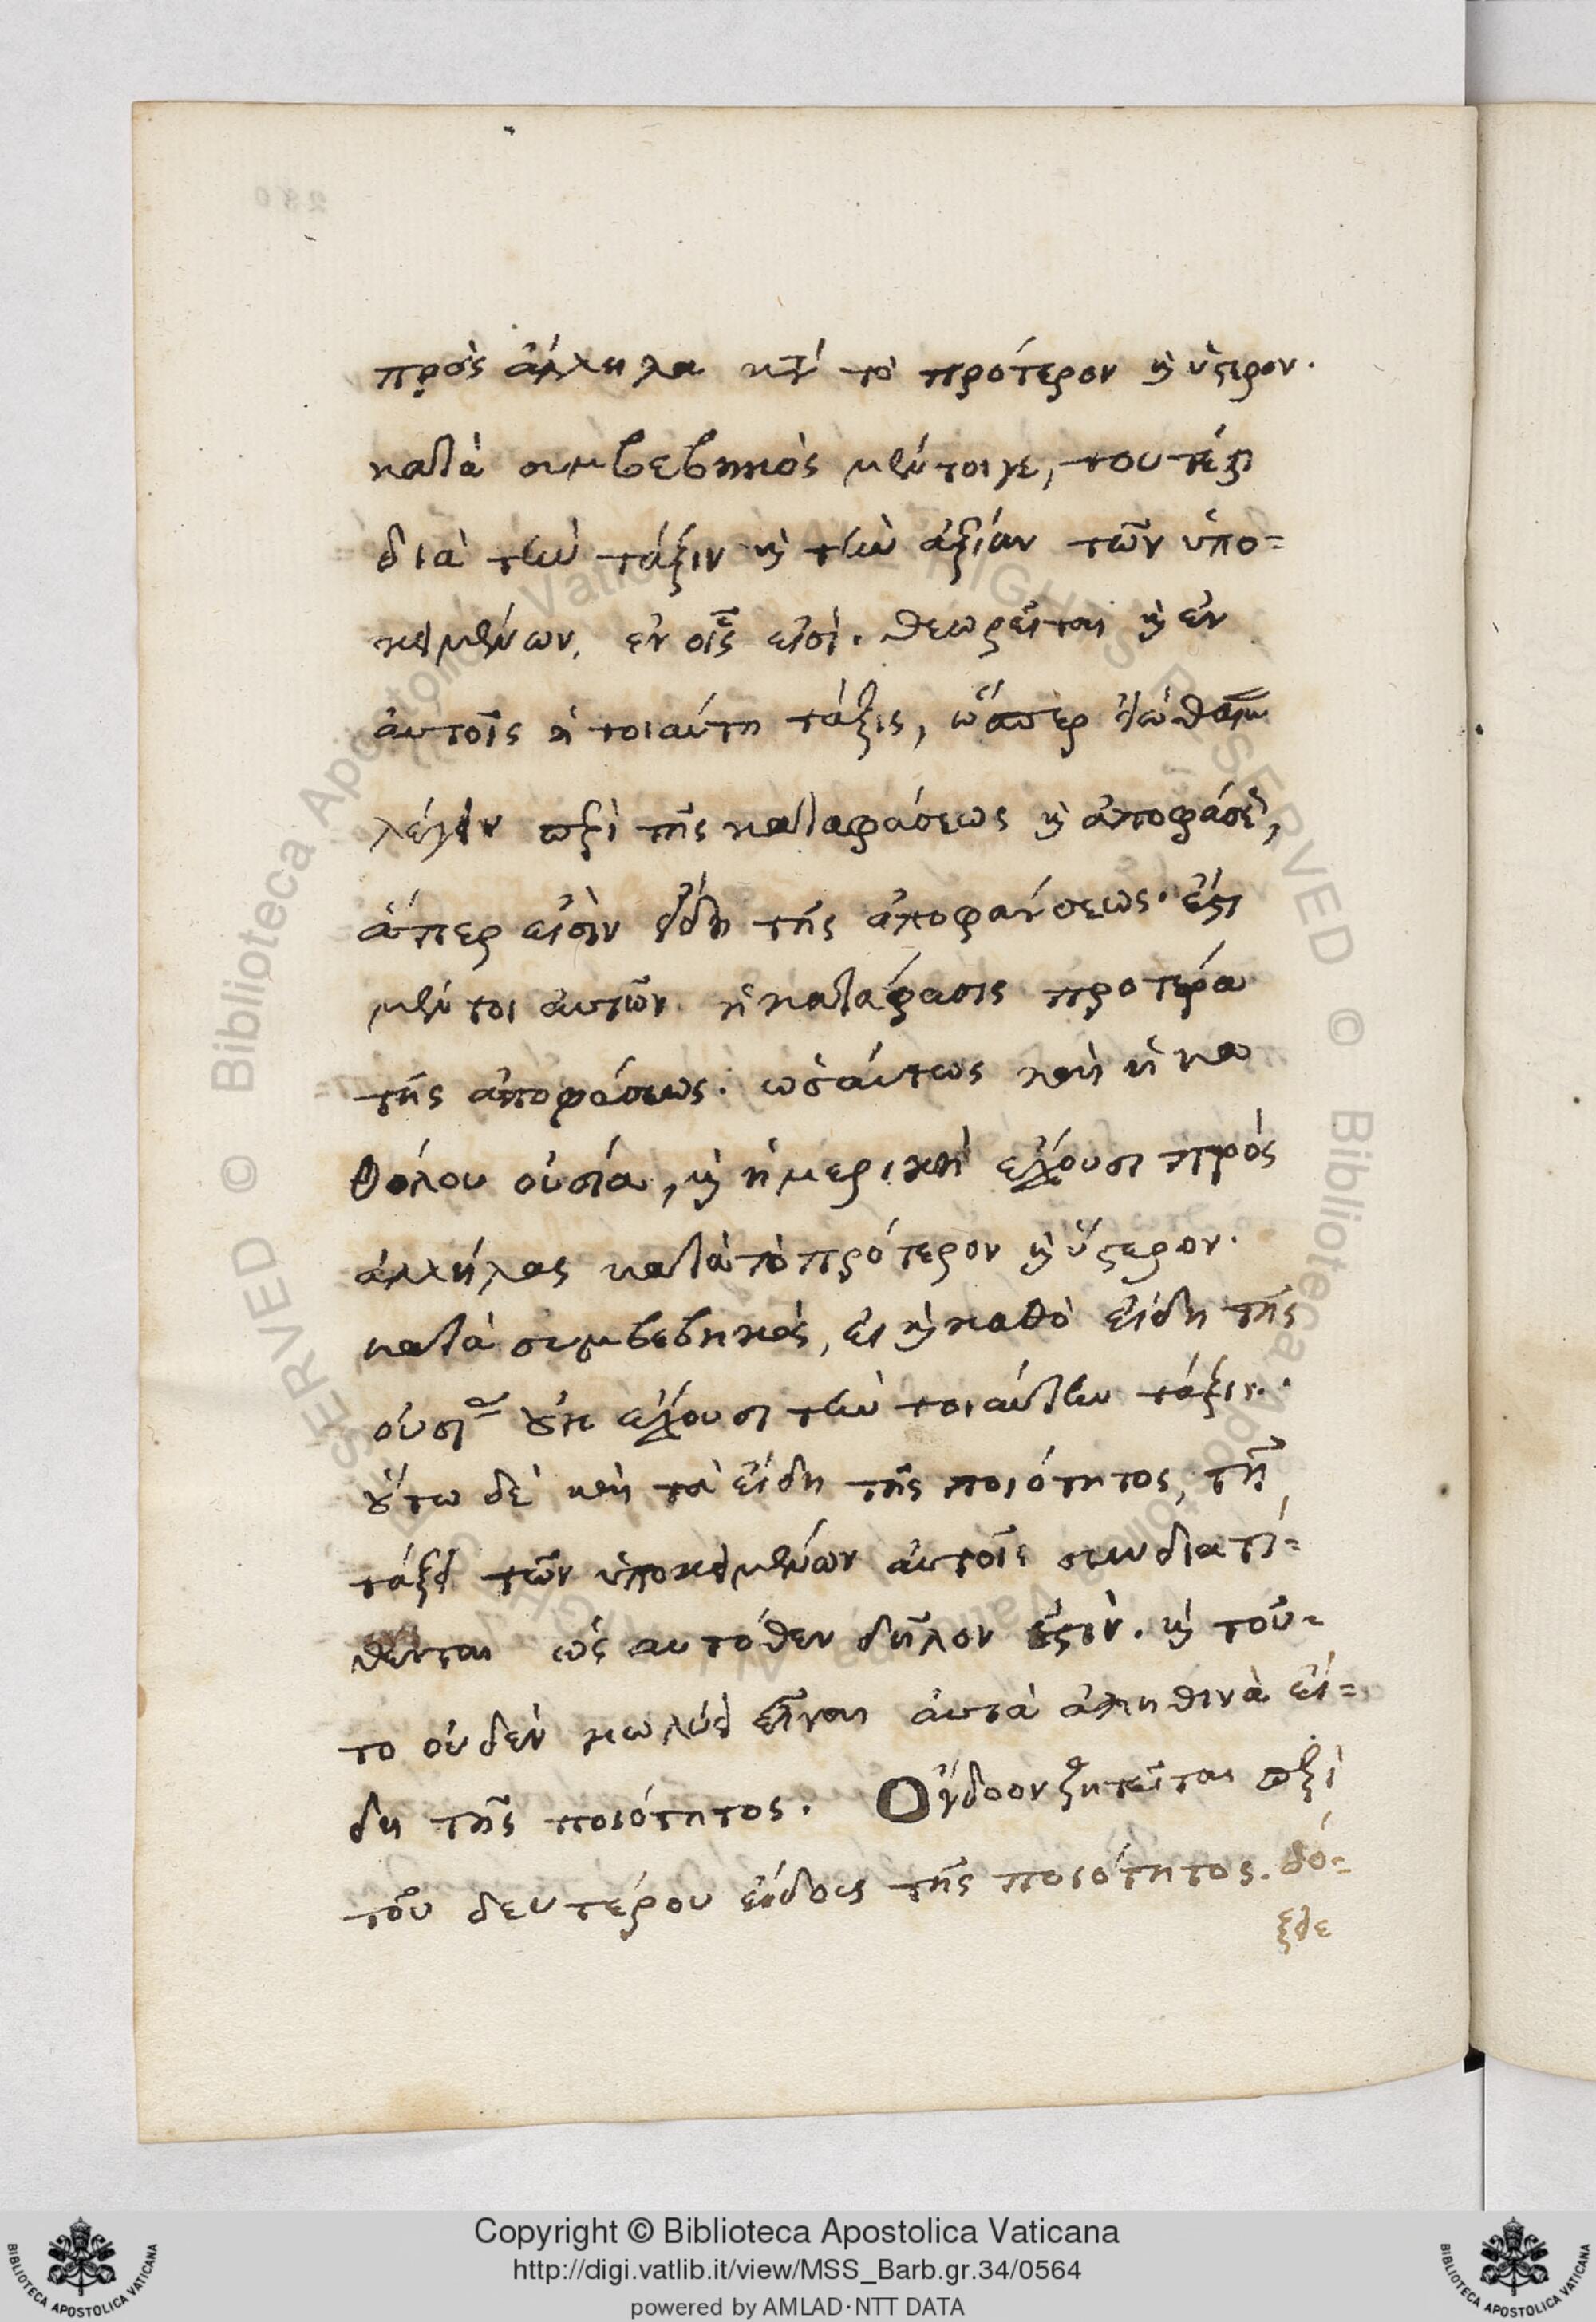 πρὸς ἄλληλα κατὰ τὸ πρότερον καὶ ὕστερον.
κατὰ συμβεβηκὸς μέντοιγε, τουτέστι
διὰ τὴν τάξιν καὶ τὴν ἀξίαν τῶν ὑπο=
κειμένων, ἐν οἷς εἰσὶ. θεωρεῖται καὶ ἐν
αὐτοῖς ἡ τοιαύτη τάξις, ὥσπερ εἰώθαμεν
λέγειν περὶ τῆς καταφάσεως καὶ ἀποφάσεως,
ἅπερ εἰσὶν εἴδη τῆς ἀποφάνσεως. ἔστι
μέντοι αὐτῶν ἡ κατάφασις προτέρα
τῆς ἀποφάσεως. ὡσαύτως καὶ ἡ κα
θόλου οὐσία, καὶ ἡ μερικὴ ἔχουσι πρὸς
ἀλλήλας κατὰ τὸ πρότερον καὶ ὕστερον.
κατὰ συμβεβηκὸς, εἰ καὶ καθὸ εἴδη τῆς
οὐσίας οὐκ ἔχουσι τὴν τοιαύτην τάξιν.
οὕτω δὲ καὶ τὰ εἴδη τῆς ποιότητος, τῇ
τάξει τῶν ὑποκειμένων αὐτοῖς συνδιατί=
θενται ὡς αὐτόθεν δῆλον ἐστὶν. καὶ τοῦ=
το οὐδὲν κωλύει εἶναι αὐτὰ ἀληθινὰ εἴ=
δη τῆς ποιότητος. Ὄγδοον ζητεῖται περὶ
τοῦ δευτέρου εἴδους τῆς ποιότητος. δό=
ξειε
Copyright © Biblioteca Apostolica Vaticana
http://digi.vatlib.it/view/MSS_Barb.gr.34/0564
powered by AMLAD·NTT DATA